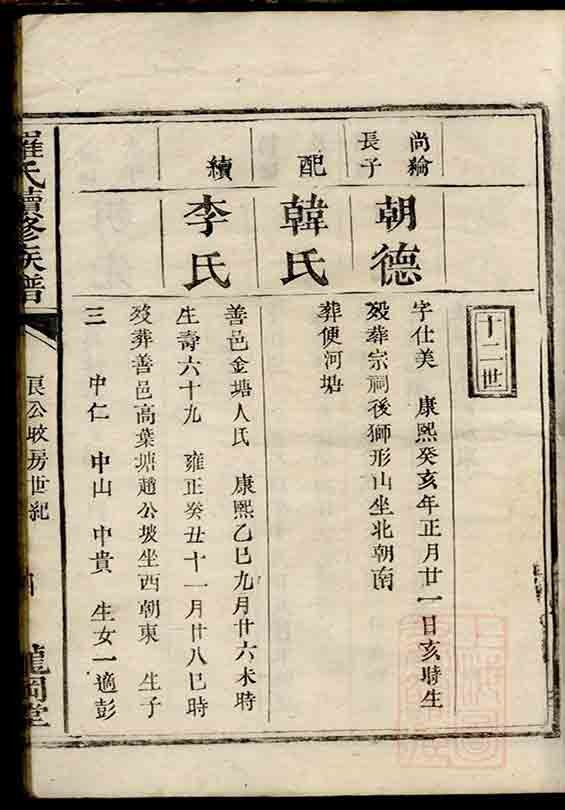 十二世
尚綸
長子
朝德
字仕美 康熙癸亥年正月廿一日亥時生
歿葬宗祠後獅形山坐北朝南
配
韓氏
葬便河塘
續
李氏
善邑金塘人氏 康熙乙巳九月廿六未時
生壽六十九 雍正癸丑十一月廿八巳時
歿葬善邑高葉塘趙公坡坐西朝東 生子
三 中仁 中山 中貴 生女一適彭
羅氏續修族譜
良公收房世紀
龍岡堂